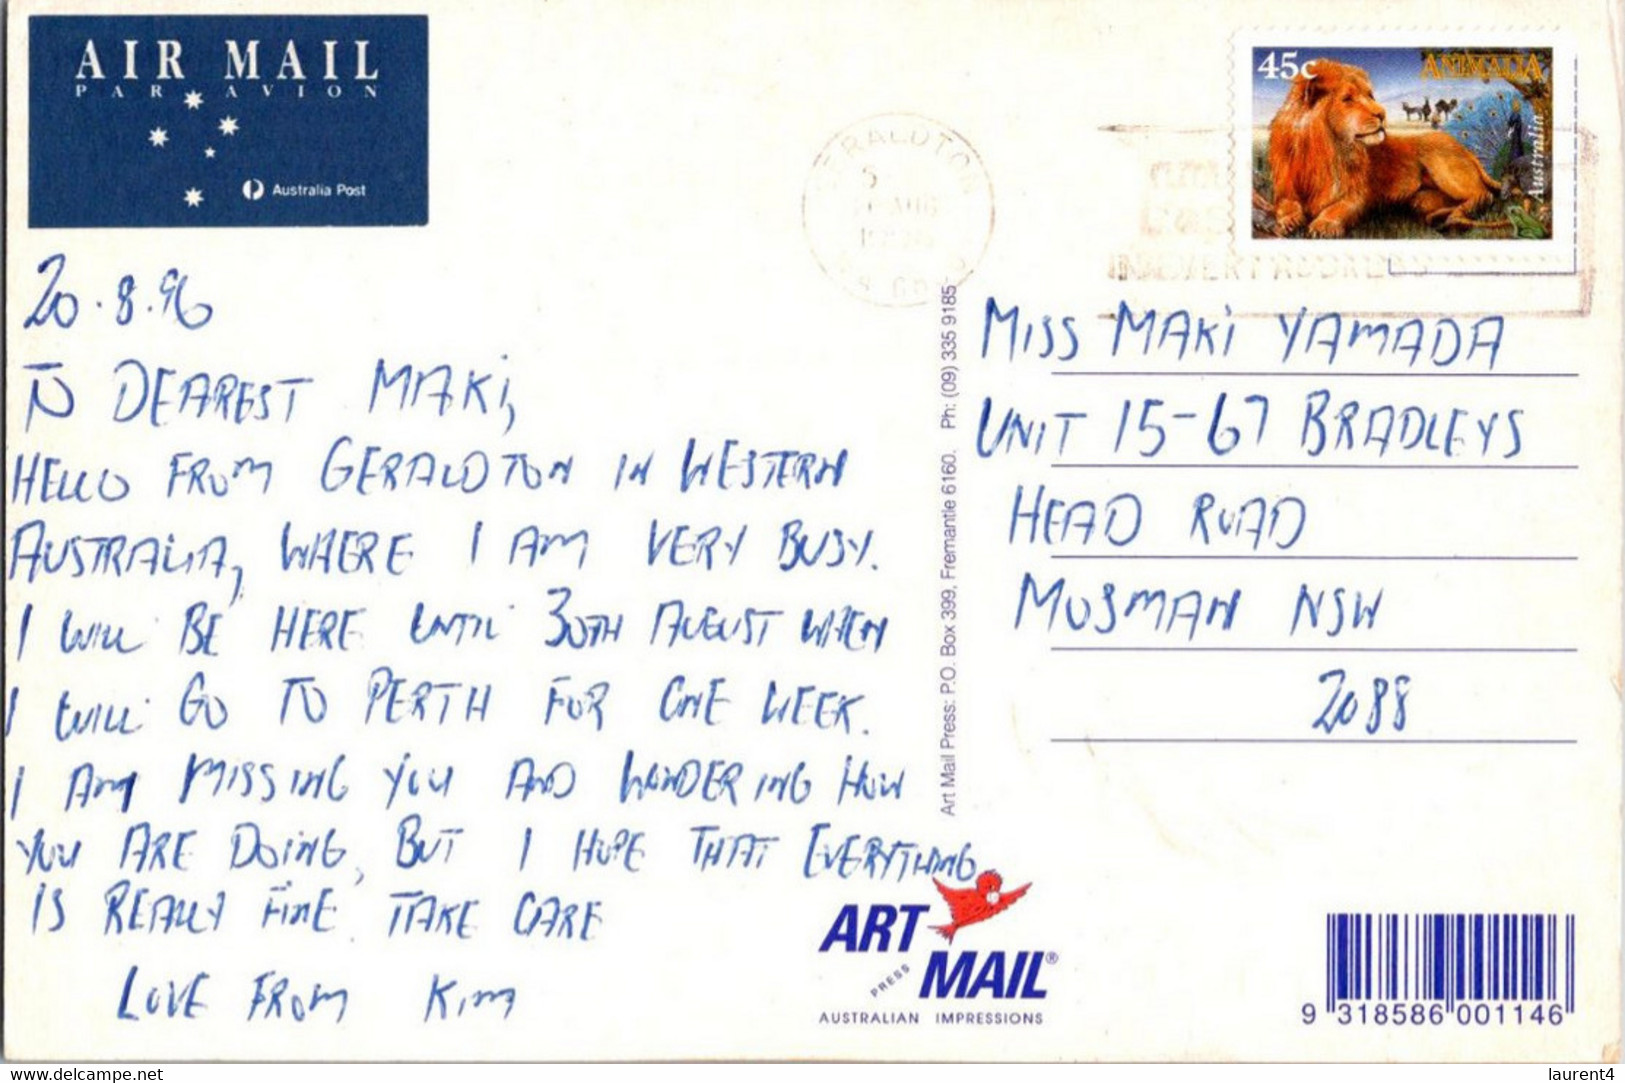 AIR MAIL
PAR AVION
Australia Post
45c
ANIMALIA
Australia
GERALDTON
AUG
20.8.96
TO DEAREST MAKi,
HELLO FROM GERALDTON IN WESTERN
AUSTRALIA, WHERE I AM VERY BUSY.
I WILL BE HERE UNTIL 30TH AUGUST WHEN
I WILL GO TO PERTH FOR ONE WEEK.
I AM MISSING YOU AND WONDERING HOW
YOU ARE DOING, BUT I HOPE THAT EVERYTHING
IS REALLY FINE. TAKE CARE
LOVE FROM KIM
Art Mail Press: P.O. Box 399, Fremantle 6160. Ph: (09) 335 9185
MISS MAKi YAMADA
UNIT 15-67 BRADLEYS
HEAD ROAD
MOSMAN NSW
2088
ART
PRESS
MAIL®
AUSTRALIAN IMPRESSIONS
9 318586 001146
www.delcampe.net
laurent4